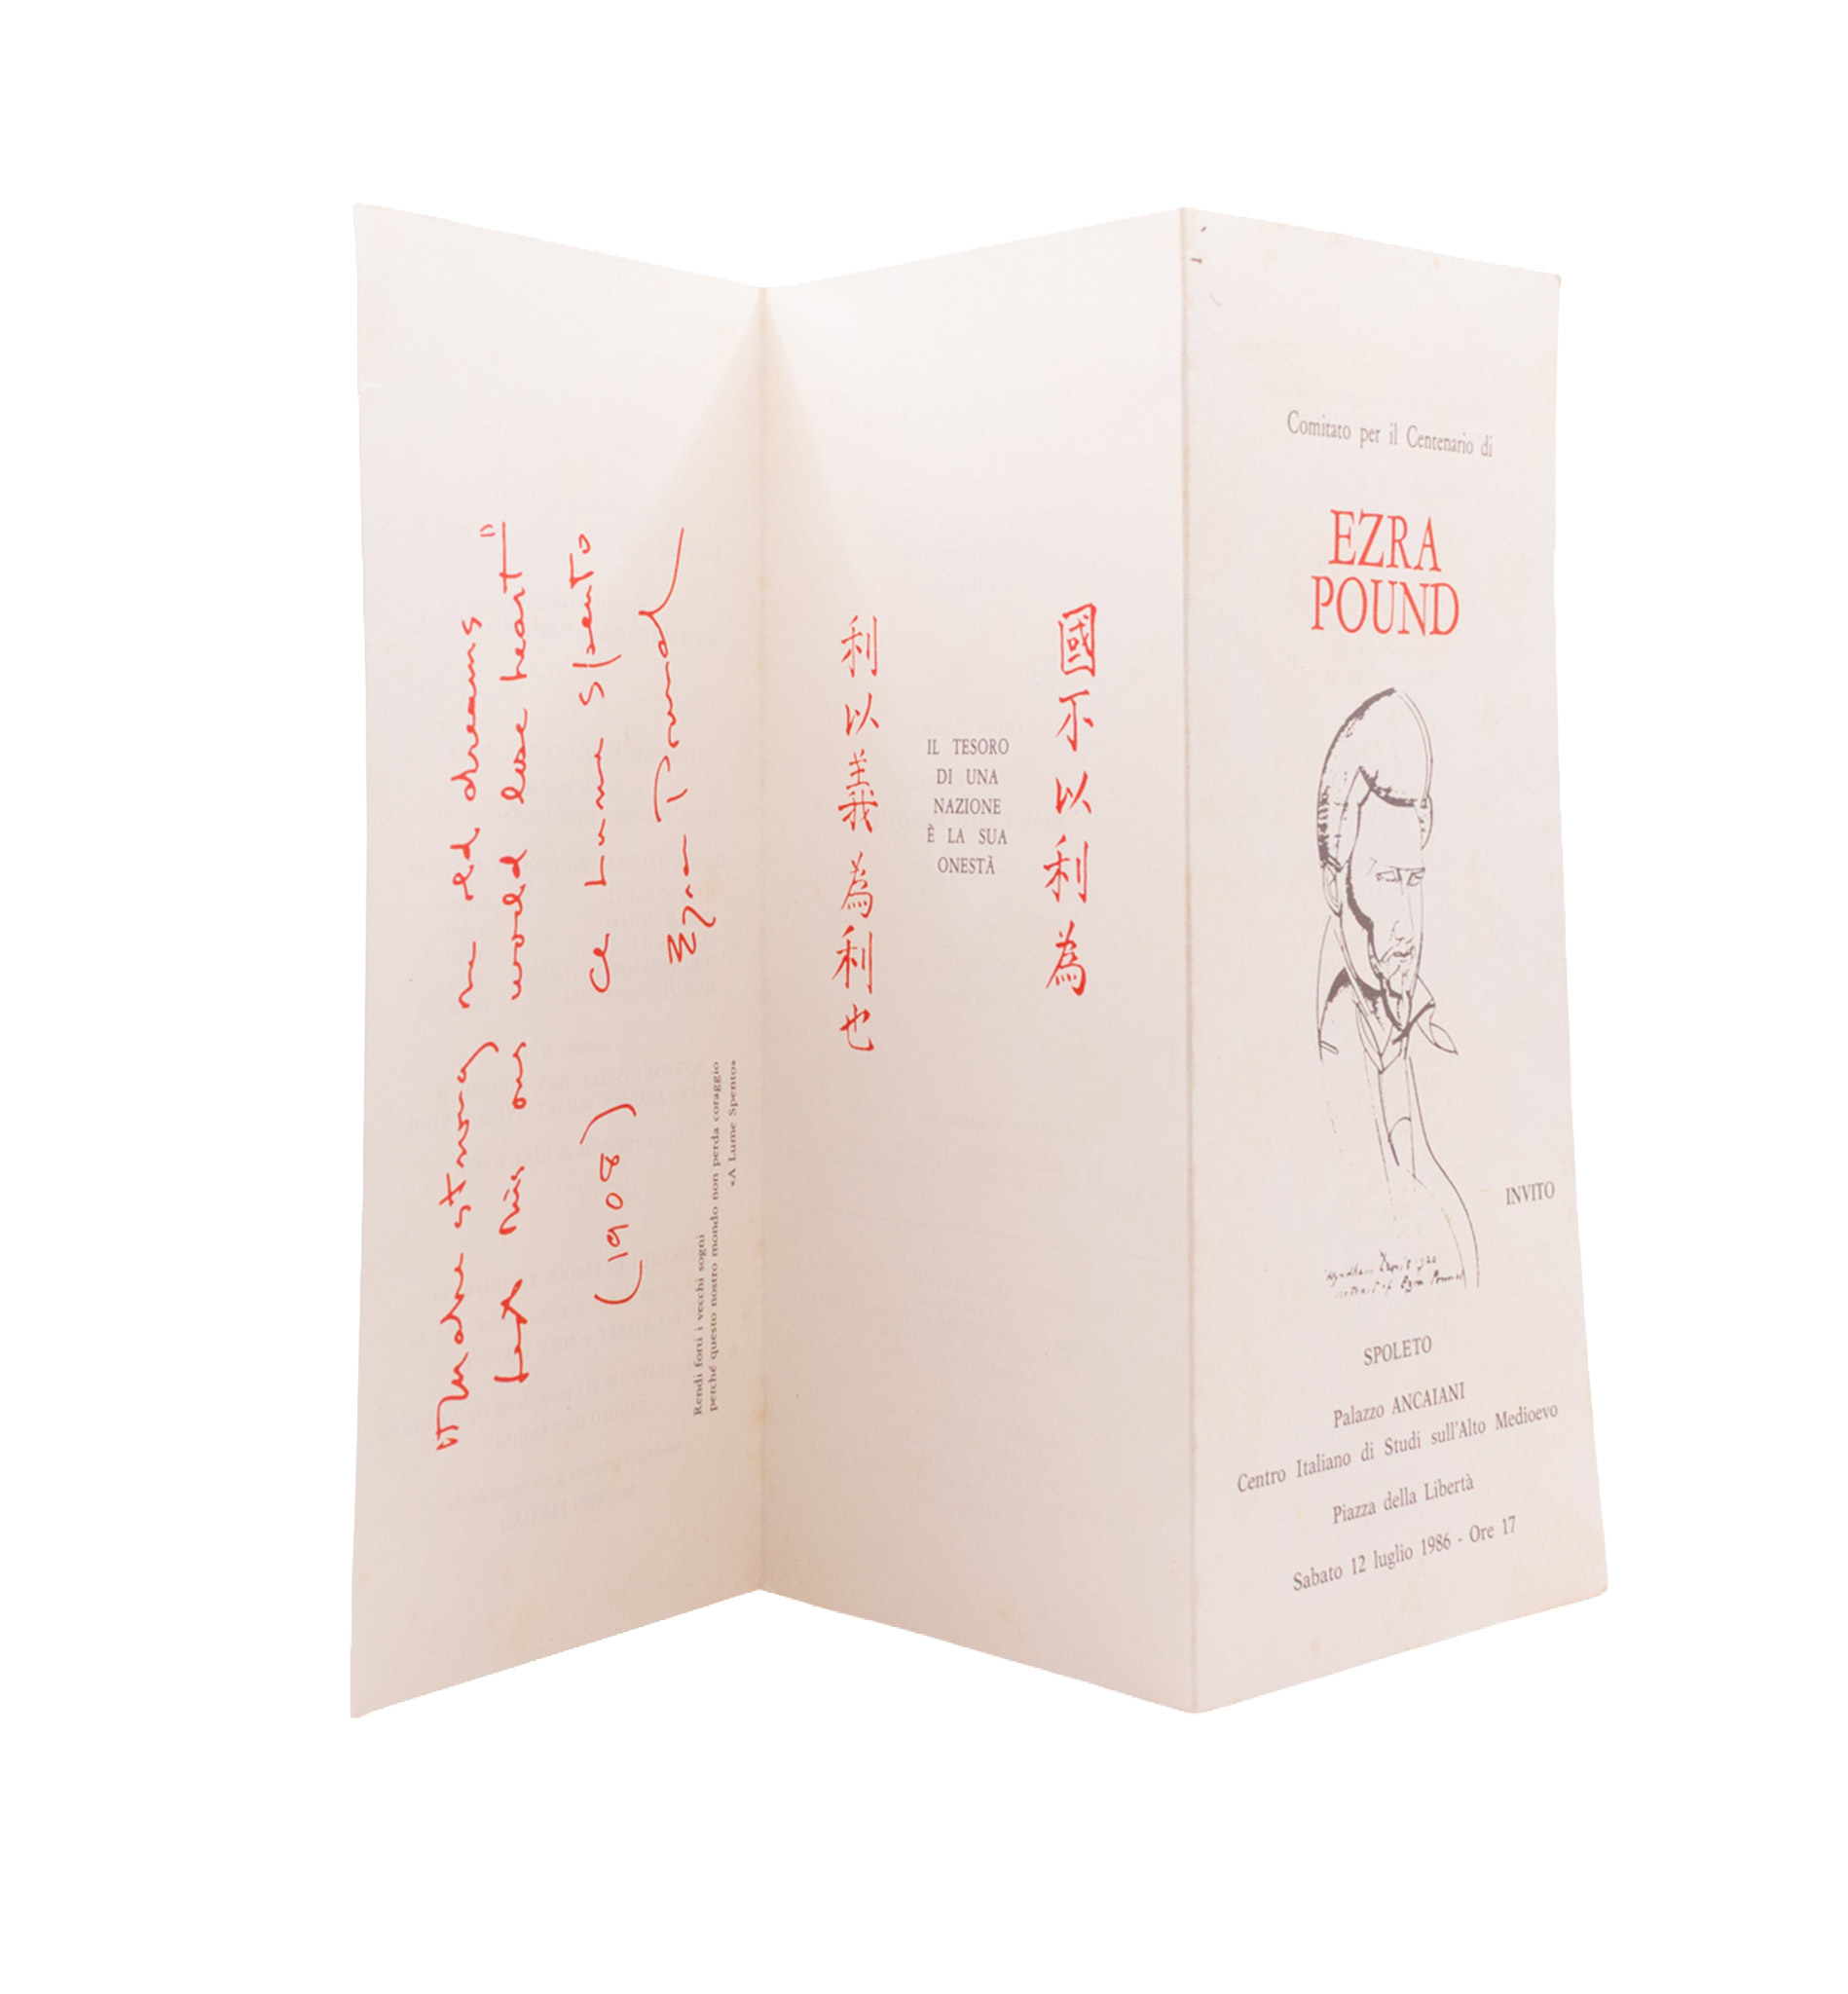 "Make strong our old dreams
lest this our world lose heart"
A Lume Spento
(1908)
Ezra Pound
Rendi forti i vecchi sogni
perché questo nostro mondo non perda coraggio
«A Lume Spento»
國不以利為
利以義為利也
IL TESORO
DI UNA
NAZIONE
È LA SUA
ONESTÀ
Comitato per il Centenario di
EZRA
POUND
INVITO
Wyndham Lewis 1920
portrait of Ezra Pound
SPOLETO
Palazzo ANCAIANI
Centro Italiano di Studi sull'Alto Medioevo
Piazza della Libertà
Sabato 12 luglio 1986 - Ore 17